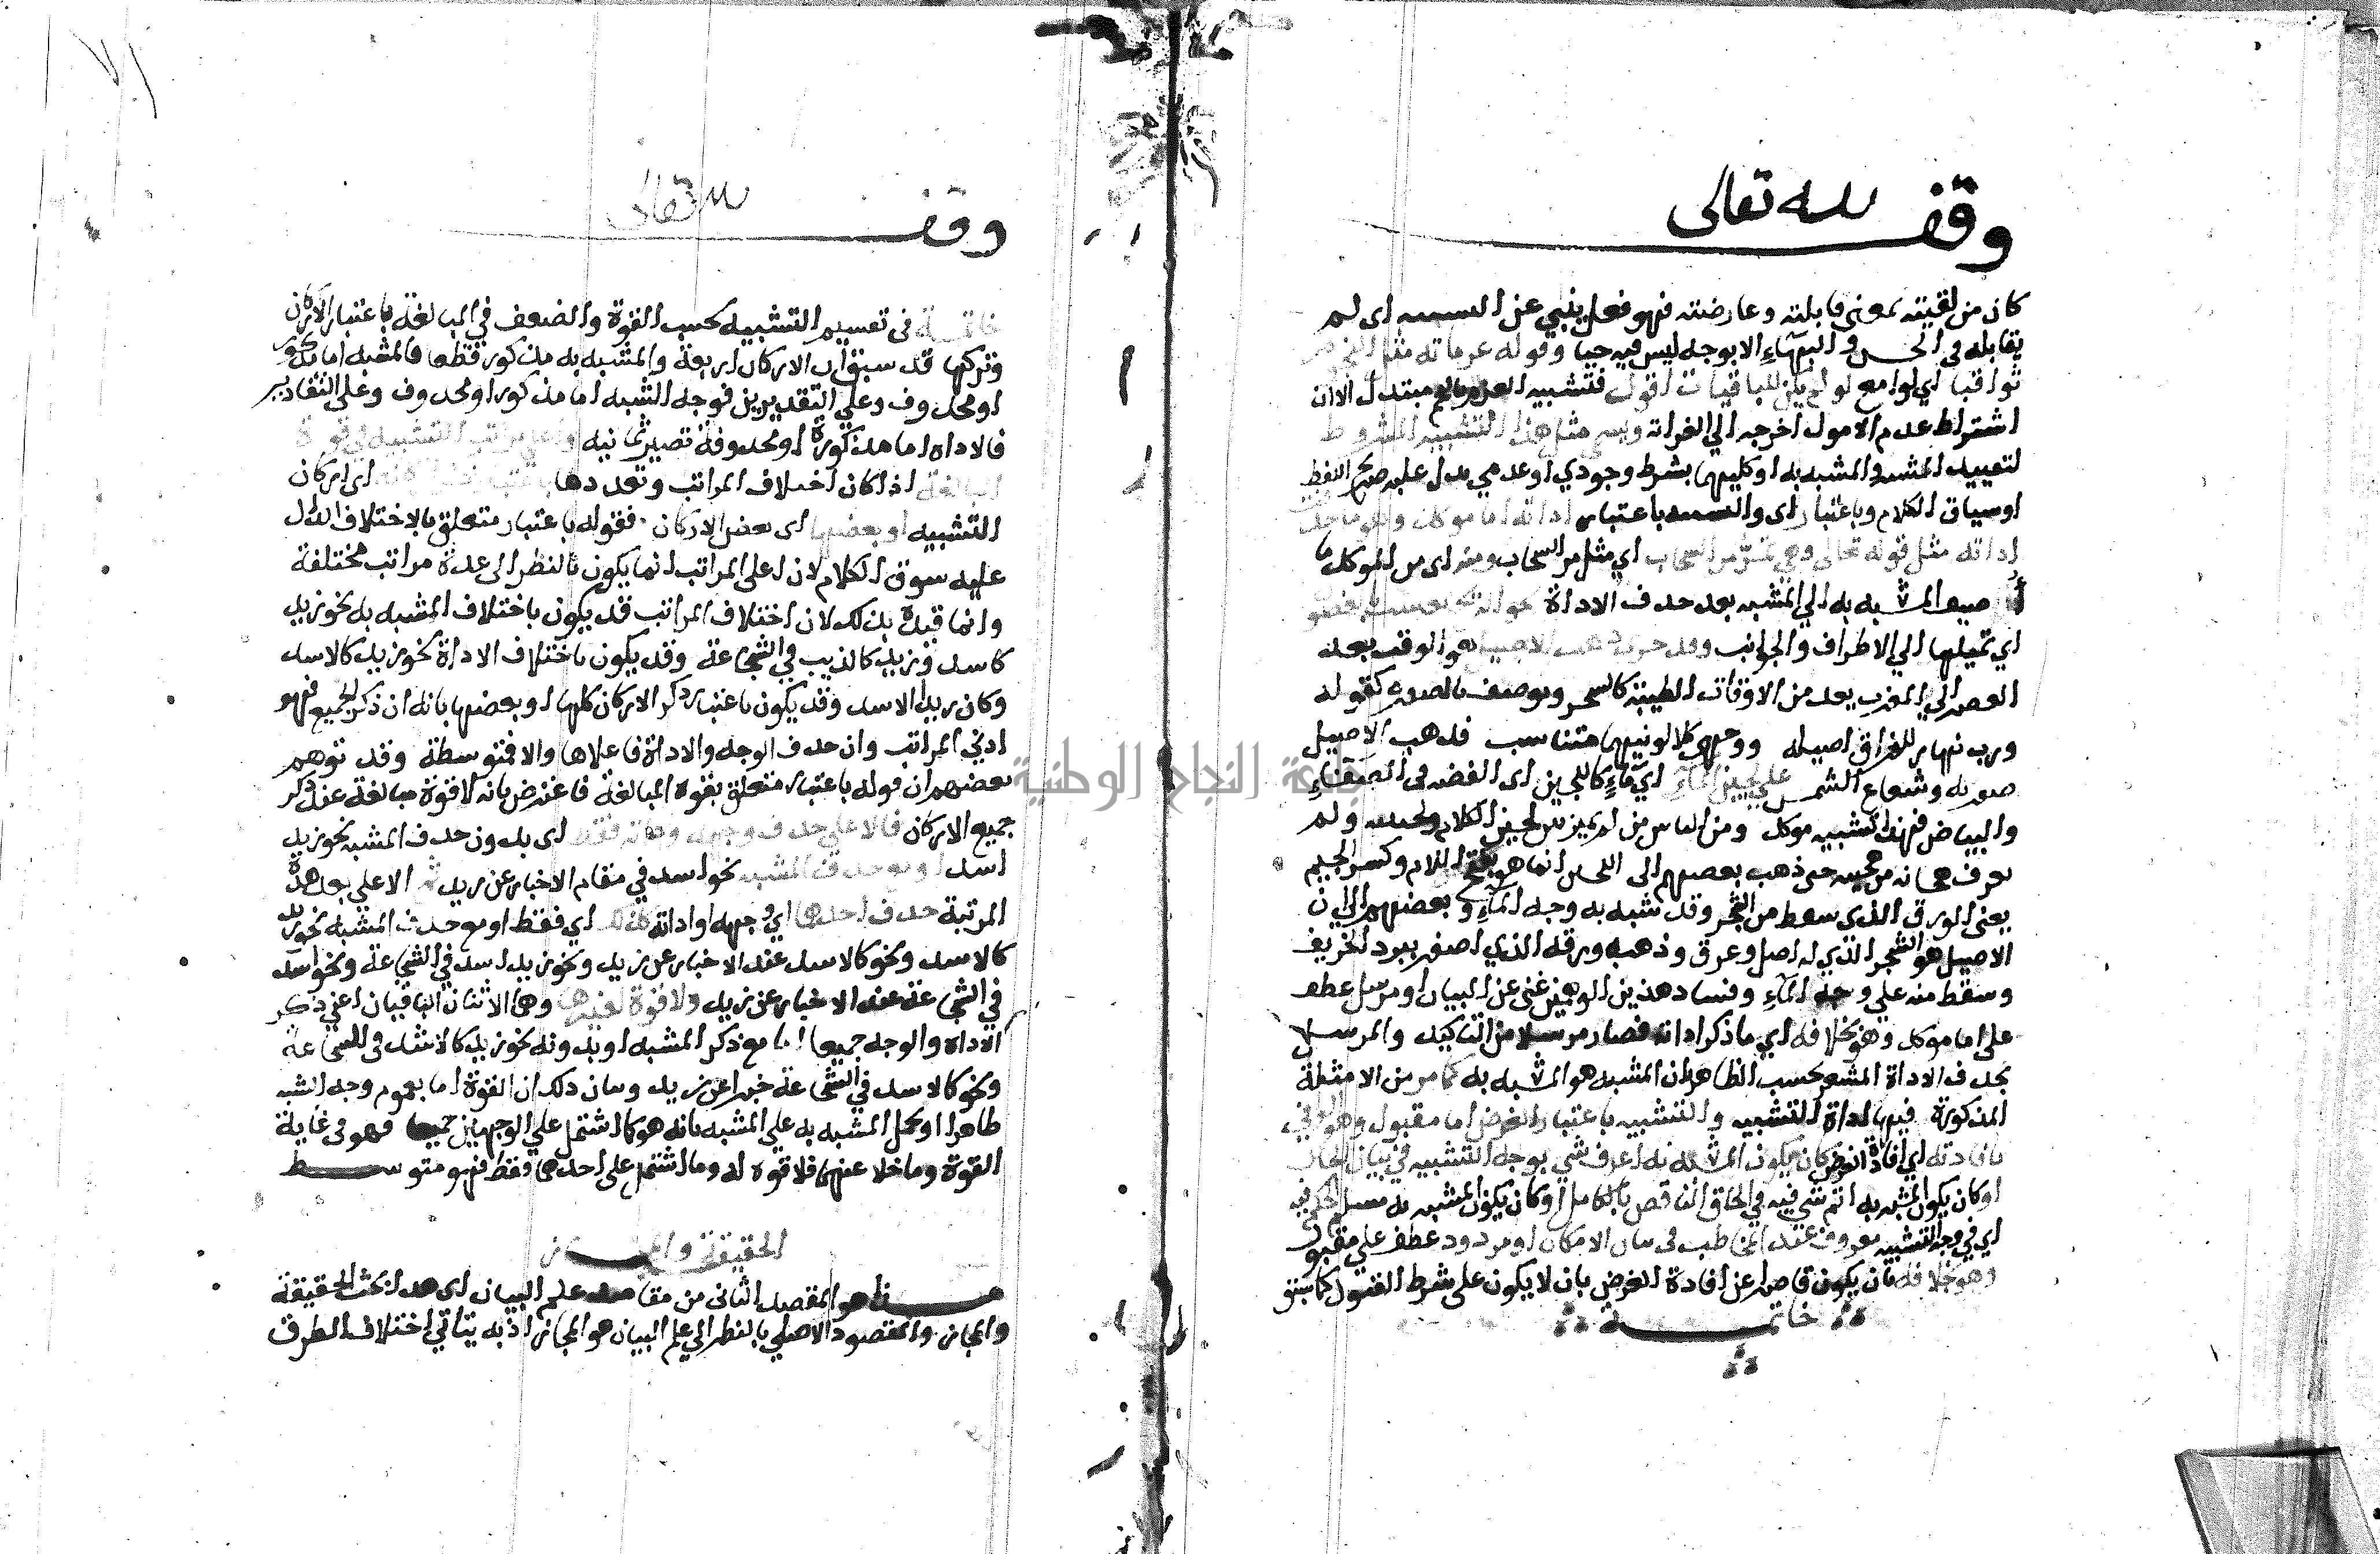 وقف لله تعالى
كان من لقيته بمعنى قابلته وعارضته فهو فعل ينبي عن التشبيه اى لم
يقابله في الحسن والبهاء الا بوجه ليس فيه حيا وقوله عزماته مثل النجوم
ثواقبا اي لوامع لو لم يكن للثاقبات افول فتشبيه العزم بالنجم مبتذل الا ان
اشتراط عدم الافول اخرجه الي الغرابة ويسمى مثل هذا التشبيه المشروط
لتقييد المشبه والمشبه به او كليهما بشرط وجودي او عدمي يدل عليه صريح اللفظ
او سياق الكلام وباعتبار اى والتشبيه باعتبار اداته اما موكد وهو ما حذف
اداته مثل قوله تعالى وهي تمر مر السحاب اي مثل مر السحاب ومنه اى من الموكد ما
اضيف المشبه به الي المشبه بعد حذف الاداة نحو والريح تعبث بالغصون
اي تميلها الي الاطراف والجوانب وقد جرى ذهب الاصيل هو الوقت بعد
العصر الي المغرب يعد من الاوقات الطيبة كالسحر ويوصف بالصفرة كقوله
ورب نهار للفراق اصيله ووجهي كلا لونيهما متناسب فذهب الاصيل
صفرته وشعاع الشمس علي لجين الماء اي ماءٍ كاللجين اى الفضه فى الصفاء
والبياض فهذا تشبيه موكد ومن الناس من لم يميز بين لجين الكلام ولجينه ولم
يعرف هجانه من هجينه حتى ذهب بعضهم الى ان اللجين انما هو بفتح اللام وكسر الجيم
يعنى الورق الذى سقط من الشجر وقد شبه به وجه الماء وبعضهم الي ان
الاصيل هو الشجر الذي له اصل وعرق وذهبه ورقه الذي اصفر ببرد الخريف
وسقط منه علي وجه الماء وفساد هذين الوهمين غنى عن البيان او مرسل عطف
على اما موكد وهو بخلافه اي ما ذكر اداته فصار مرسلا من التاكيد والمرسل
بحذف الاداة المشعر بحسب الظاهر ان المشبه هو المشبه به كما مر من الامثلة
المذكورة فيها اداة التشبيه والتشبيه باعتبار الغرض اما مقبول وهو الوافي
بافادته اي افادة الغرض كان يكون المشبه به اعرف شي بوجه التشبيه في بيان الحال
او كان يكون المشبه به اتم شي فيه في الحاق الناقص بالكامل او كان يكون المشبه به مسلم الحكم فيه
اي في وجه التشبيه معروف عند المخاطب فى بيان الامكان او مردود عطف علي مقبول
وهو بخلافه بان يكون قاصرا عن افادة الغرض بان لا يكون على شرط القبول كما سبق
خاتمة
وقف لله تعالى
خاتمة فى تقسيم التشبيه بحسب القوة والضعف في المبالغة باعتبار الاركان
وتركها قد سبق ان الاركان اربعة والمشبه به مذكور قطعا فالمشبه اما مذكور
او محذوف وعلي التقديرين فوجه الشبه اما مذكور او محذوف وعلى التقادير
فالاداة اما مذكورة او محذوفة تصير ثمانيه واعلى مراتب التشبيه في قوة
المبالغة اذا كان اختلاف المراتب وتعددها باعتبار ذكر اركانه اى اركان
التشبيه او بعضها اى بعض الاركان فقوله باعتبار متعلق بالاختلاف الدال
عليه سوق الكلام لان اعلى المراتب انما يكون بالنظر الى عدة مراتب مختلفة
وانما قيد بذلك لان اختلاف المراتب قد يكون باختلاف المشبه به نحو زيد
كاسد وزيد كالذيب في الشجاعة وقد يكون باختلاف الاداة نحو زيد كالاسد
وكان زيدا الاسد وقد يكون باعتبار ذكر الاركان كلها او بعضها بانه ان ذكر الجميع فهو
ادني المراتب وان حذف الوجه والاداة فاعلاها والا فمتوسطة وقد توهم
بعضهم ان قوله باعتبار متعلق بقوة المبالغة فاعترض بانه لا قوة مبالغة عند ذكر
جميع الاركان فالاعلي حذف وجهه واداته فقط اى بدون حذف المشبه نحو زيد
اسد او مع حذف المشبه نحو اسد في مقام الاخبار عن زيد ثم الاعلي بعد هذه
المرتبة حذف احدهما اي وجهه او اداته كذلك اي فقط او مع حذف المشبه نحو زيد
كالاسد ونحو كالاسد عند الاخبار عن زيد ونحو زيد اسد في الشجاعة ونحو اسد
في الشجاعة عند الاخبار عن زيد ولا قوة لغيرها وهما الاثنان الباقيان اعني ذكر
الاداة والوجه جميعا اما مع ذكر المشبه او بدونه نحو زيد كالاسد في الشجاعة
ونحو كالاسد في الشجاعة خبرا عن زيد وبيان ذلك ان القوة اما بعموم وجه الشبه
ظاهرا او بحمل المشبه به علي المشبه بانه هو فما اشتمل علي الوجهين جميعا فهو فى غاية
القوة وما خلا عنهما فلا قوة له وما اشتمل على احدهما فقط فهو متوسط
الحقيقة والمجاز
هذا هو المقصد الثانى من مقاصد علم البيان اى هذا بحث الحقيقة
والمجاز والمقصود الاصلي بالنظر الي علم البيان هو المجاز اذ به يتاتي اختلاف الطرق
جامعة النجاح الوطنية